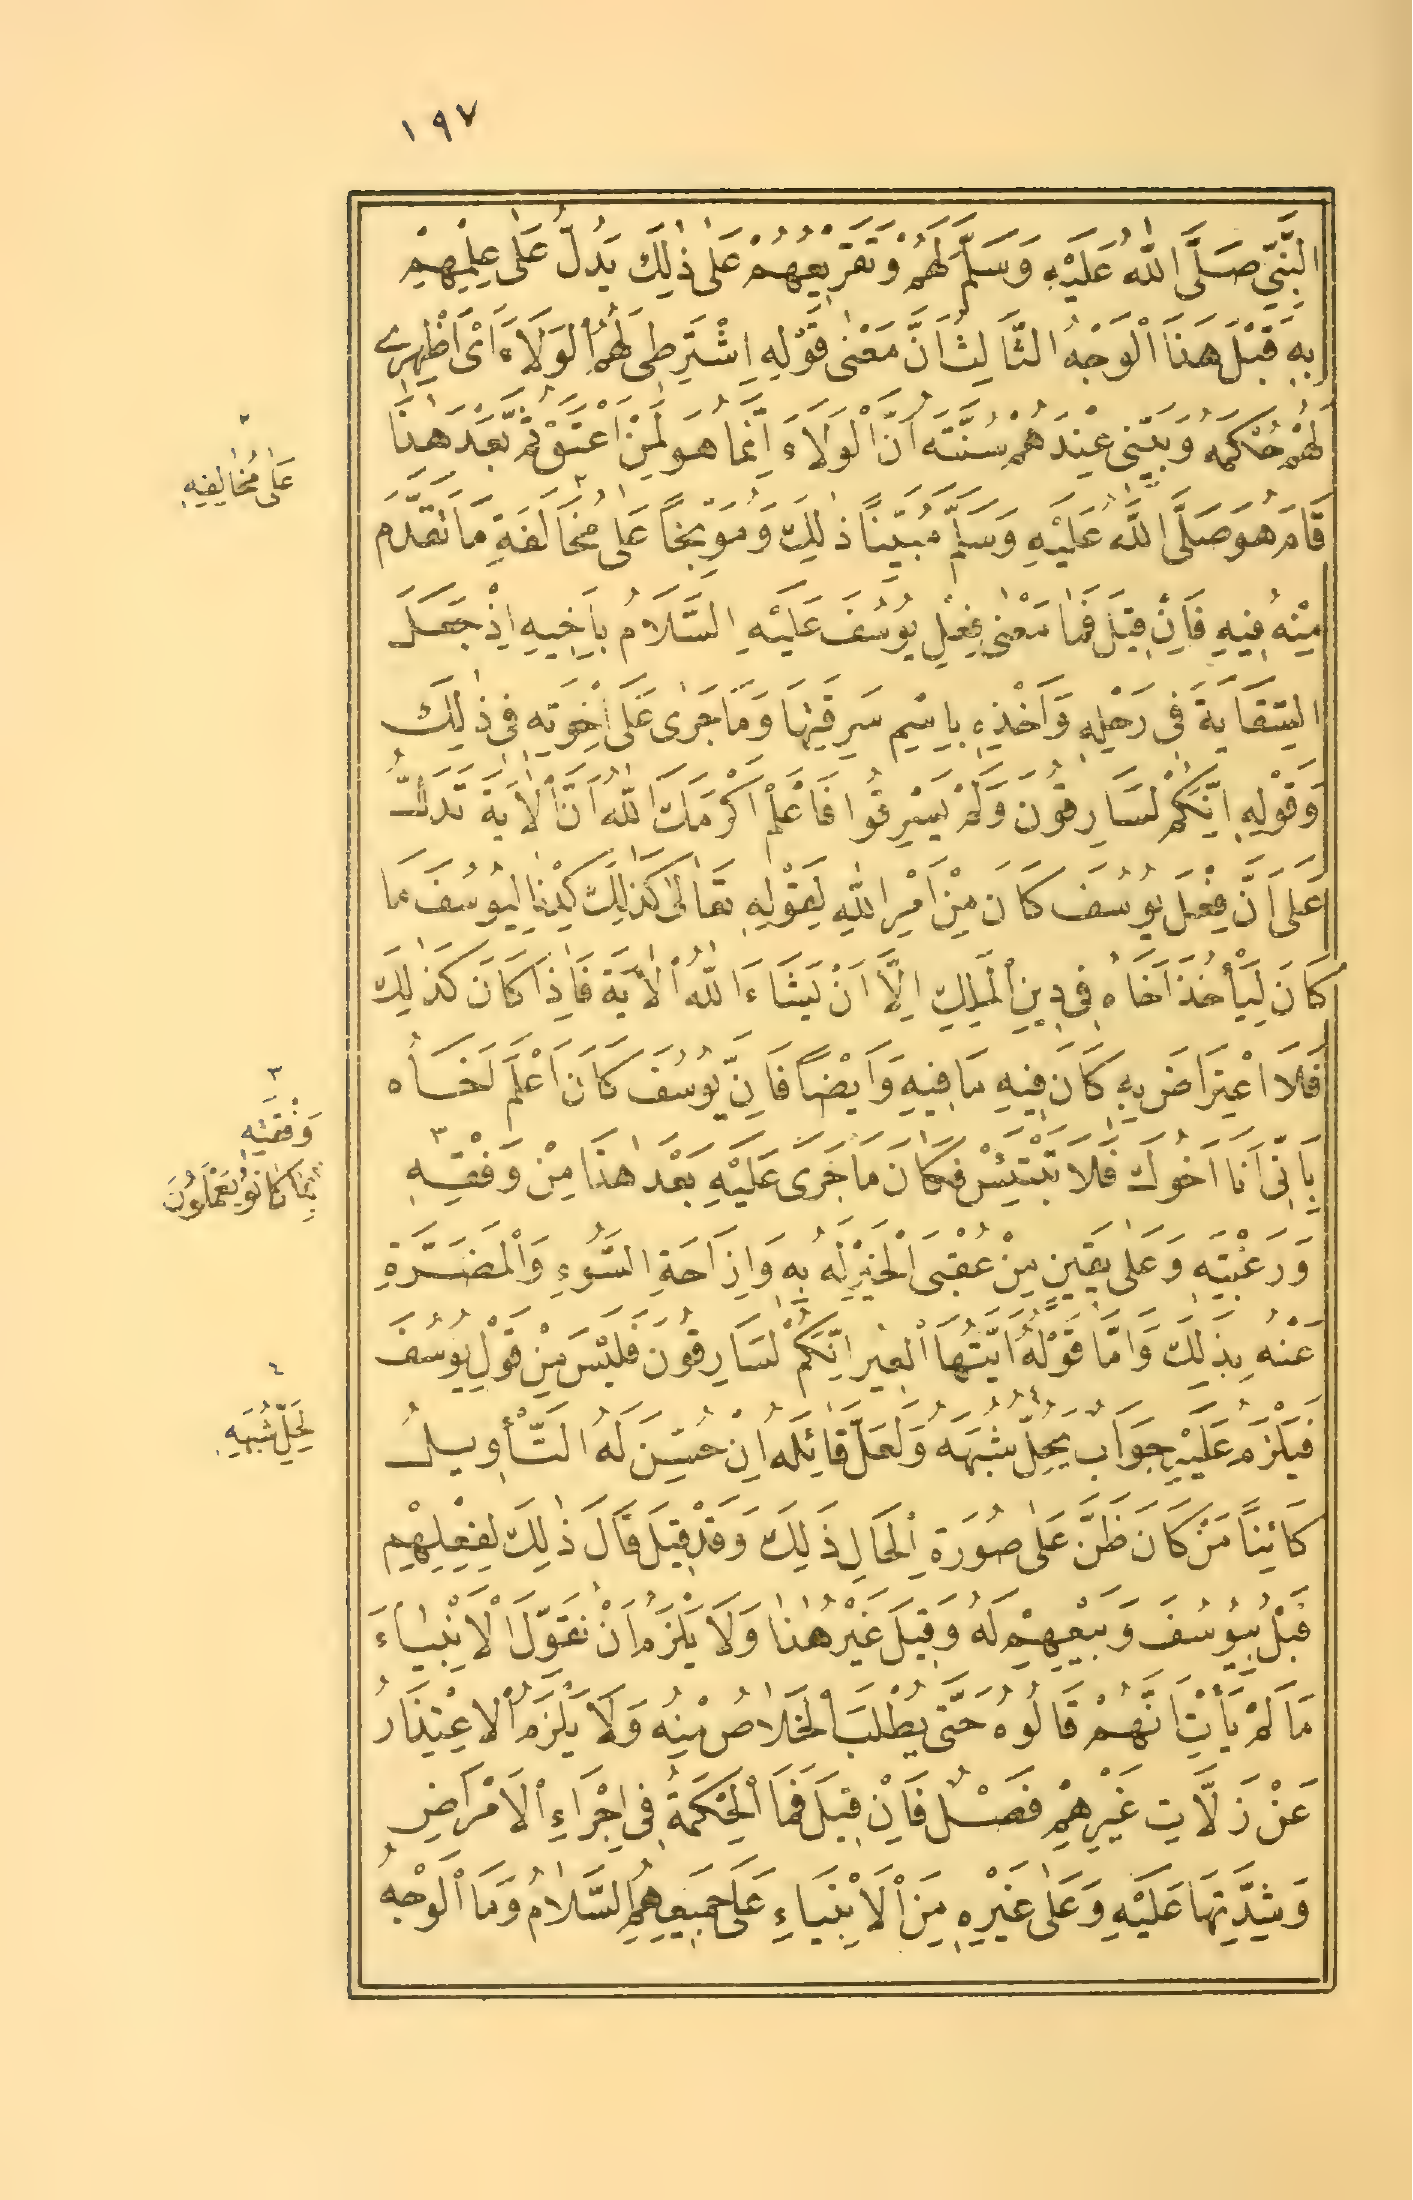 ١٩٧
النَّبِيِّ صَلَّى اللّٰهُ عَلَيْهِ وَسَلَّمَ لَهُمْ وَتَقْرِيعُهُمْ عَلَى ذٰلِكَ يَدُلُّ عَلٰى عِلْمِهِمْ
بِهِ قَبْلَ هَذَا اَلْوَجْهُ الثَّالِثُ اَنَّ مَعْنٰى قَوْلِهِ اِشْتَرِطِى لَهُمُ الْوَلَاءَ اَىْ اَظْهِرِى
لَهُمْ حُكْمَهُ وَبَيِّنِى عِنْدَهُمْ سُنَّتَهُ اَنَّ الْوَلَاءَ اِنَّمَا هُوَ لِمَنْ اَعْتَقَ ثُمَّ بَعْدَ هٰذَا
قَامَ هُوَ صَلَّى اللّٰهُ عَلَيْهِ وَسَلَّمَ مُبَيِّنًا ذٰلِكَ وَمُوَبِّخًا عَلٰى مُخَالَفَةِ مَا تَقَدَّمَ
٢
عَلٰى مُخَالِفِيهِ
مِنْهُ فِيهِ فَاِنْ قِيلَ فَمَا مَعْنٰى فِعْلِ يُوسُفَ عَلَيْهِ السَّلَامُ بِاَخِيهِ اِذْ جَعَلَ
السِّقَايَةَ فِى رَحْلِهِ وَاَخْذِهِ بِاسْمِ سَرِقَتِهَا وَمَا جَرٰى عَلَى اِخْوَتِهِ فِى ذٰلِكَ
وَقَوْلِهِ اِنَّكُمْ لَسَارِقُونَ وَلَمْ يَسْرِقُوا فَاعْلَمْ اَكْرَمَكَ اللّٰهُ اَنَّ الْاٰيَةَ تَدُلُّ
عَلَى اَنَّ فِعْلَ يُوسُفَ كَانَ مِنْ اَمْرِ اللّٰهِ لِقَوْلِهِ تَعَالٰى كَذٰلِكَ كِدْنَا لِيُوسُفَ مَا
كَانَ لِيَأْخُذَ اَخَاهُ فِى دِينِ الْمَلِكِ اِلَّا اَنْ يَشَاءَ اللّٰهُ الْاٰيَةَ فَاِذَا كَانَ كَذٰلِكَ
فَلَا اعْتِرَاضَ بِهِ كَانَ فِيهِ مَا فِيهِ وَاَيْضًا فَاِنَّ يُوسُفَ كَانَ اَعْلَمَ اَخَاهُ
بِاَنِّى اَنَا اَخُوكَ فَلَا تَبْتَئِسْ فَكَانَ مَا جَرَى عَلَيْهِ بَعْدَ هٰذَا مِنْ وَفْقِهِ
٣
وَفْقَيْهِ
بِمَا كَانُوا يَعْمَلُونَ
وَرَغْبَتِهِ وَعَلٰى يَقِينٍ مِنْ عُقْبَى الْخَيْرِ لَهُ بِهِ وَاِزَاحَةِ السُّوءِ وَالْمَضَرَّةِ
عَنْهُ بِذَلِكَ وَاَمَّا قَوْلُهُ اَيَّتُهَا الْعِيرُ اِنَّكُمْ لَسَارِقُونَ فَلَيْسَ مِنْ قَوْلِ يُوسُفَ
فَيَلْزَمَ عَلَيْهِ جَوَابٌ يَحُلُّ شُبَهَهُ وَلَعَلَّ قَائِلَهُ اِنْ حُسِّنَ لَهُ التَّأْوِيلُ
٤
لِحَلِّ شُبَهِهِ
كَائِنًا مَنْ كَانَ ظَنَّ عَلٰى صُورَةِ الْحَالِ ذَلِكَ وَقَدْ قِيلَ قَالَ ذٰلِكَ لِفِعْلِهِمْ
قَبْلُ بِيُوسُفَ وَبَيْعِهِمْ لَهُ وَقِيلَ غَيْرُ هٰذَا وَلَا يَلْزَمُ اَنْ نُقَوِّلَ الْاَنْبِيَاءَ
مَا لَمْ يَأْتِ اَنَّهُمْ قَالُوهُ حَتّٰى يُطْلَبَ الْخَلَاصُ مِنْهُ وَلَا يَلْزَمُ الْاِعْتِذَارُ
عَنْ زَلَّاتِ غَيْرِهِمْ فَصْلٌ فَاِنْ قِيلَ فَمَا الْحِكْمَةُ فِى اِجْرَاءِ الْاَمْرَاضِ
وَشِدَّتِهَا عَلَيْهِ وَعَلٰى غَيْرِهِ مِنَ الْاَنْبِيَاءِ عَلَى جَمِيعِهِمُ السَّلَامُ وَمَا الْوَجْهُ